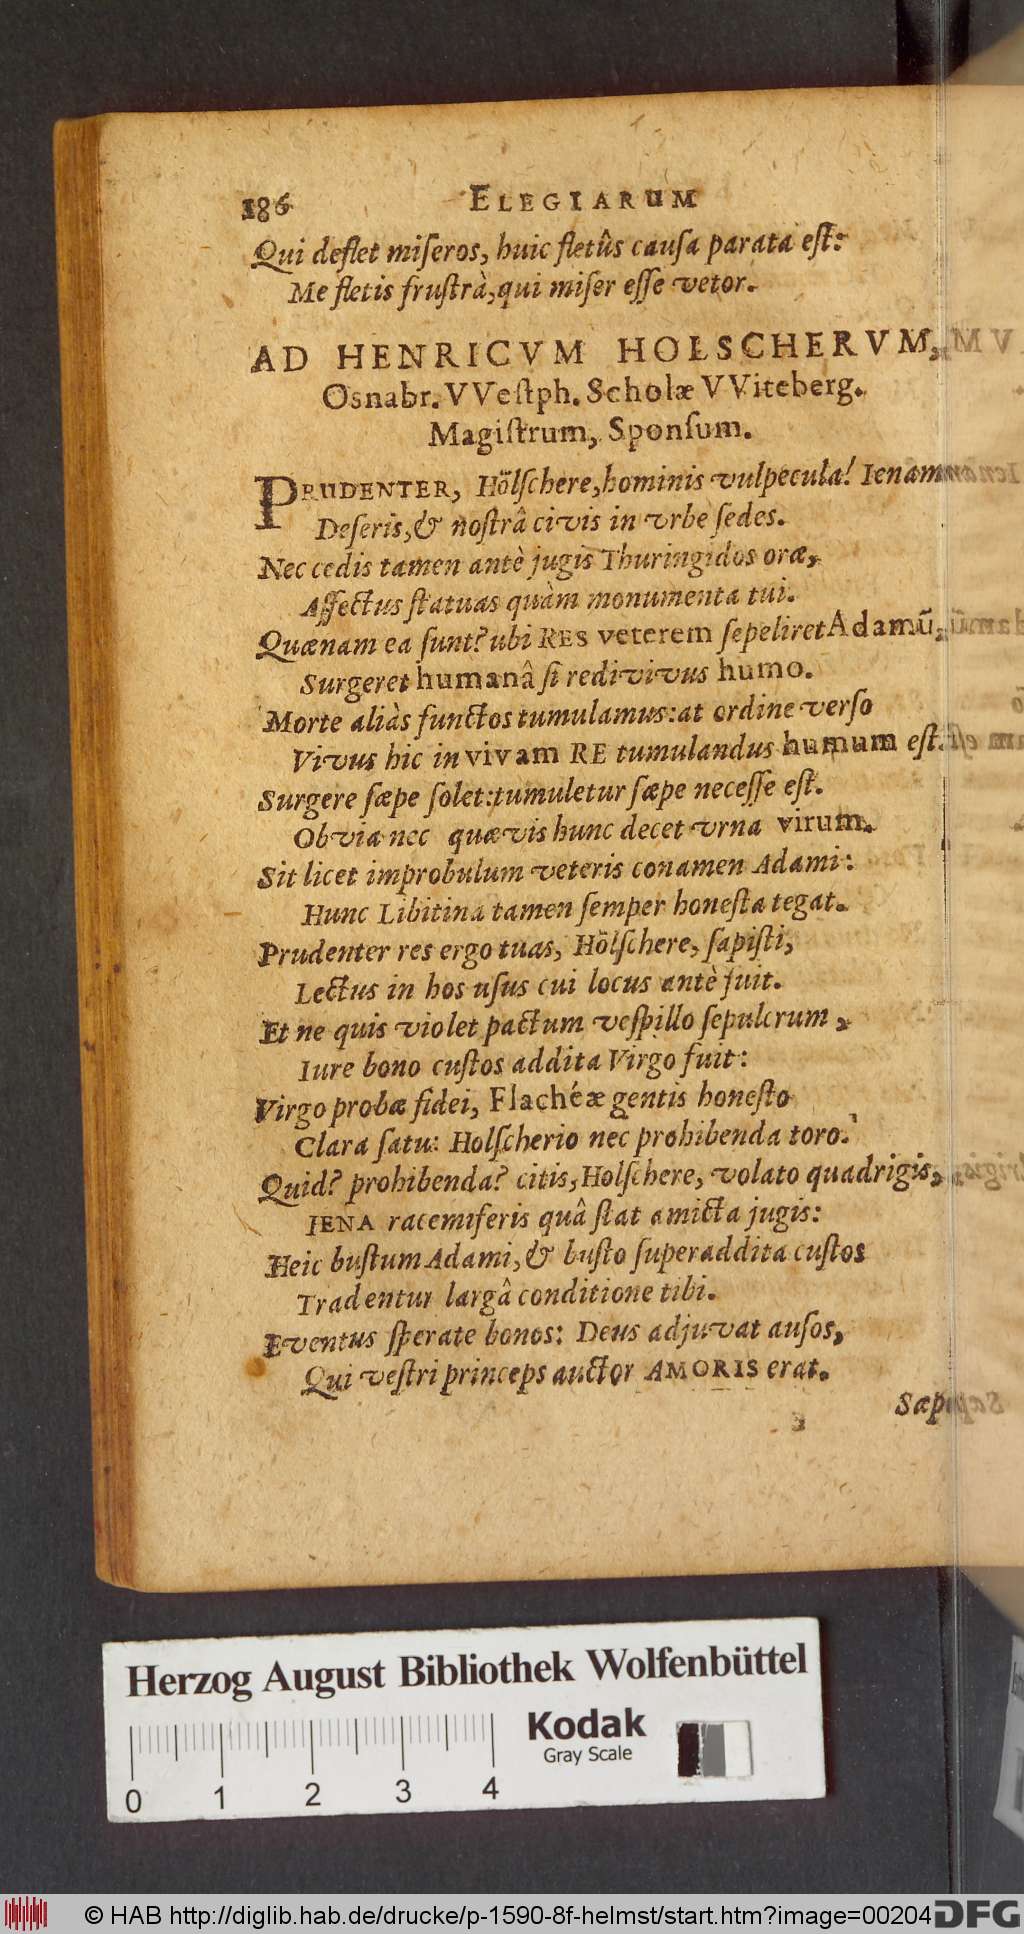 186 ELEGIARUM
Qui deflet miſeros, huic fletûs cauſa parata eſt:
Me fletis fruſtrà, qui miſer eſſe vetor.
AD HENRICVM HOLSCHERVM,
Osnabr. VVeſtph. Scholæ VViteberg.
Magiſtrum, Sponſum.
PRUDENTER, Hölſchere, hominis vulpecula! Ienam
Deſeris, & noſtrâ civis in vrbe ſedes.
Nec cedis tamen antè jugis Thuringidos oræ,
Affectus ſtatuas quàm monumenta tui.
Quænam ea ſunt? ubi RES veterem ſepeliret Adamũ,
Surgeret humanâ ſi redivivus humo.
Morte aliàs functos tumulamus: at ordine verſo
Vivus hic in vivam RE tumulandus humum eſt.
Surgere ſæpe ſolet: tumuletur ſæpe neceſſe eſt.
Obvia nec quævis hunc decet vrna virum.
Sit licet improbulum veteris conamen Adami:
Hunc Libitina tamen ſemper honeſta tegat.
Prudenter res ergo tuas, Hölſchere, ſapiſti,
Lectus in hos uſus cui locus antè fuit.
Et ne quis violet pactum veſpillo ſepulcrum,
Iure bono cuſtos addita Virgo fuit:
Virgo probæ fidei, Flachéæ gentis honeſto
Clara ſatu: Holſcherio nec prohibenda toro.
Quid? prohibenda? citis, Holſchere, volato quadrigis,
IENA racemiferis quâ ſtat amicta jugis:
Heic buſtum Adami, & buſto ſuperaddita cuſtos
Tradentur largâ conditione tibi.
Eventus ſperate bonos: Deus adjuvat auſos,
Qui veſtri princeps auctor AMORIS erat.
Sæpe
Herzog August Bibliothek Wolfenbüttel
Kodak
Gray Scale
0 1 2 3 4
© HAB http://diglib.hab.de/drucke/p-1590-8f-helmst/start.htm?image=00204
DFG